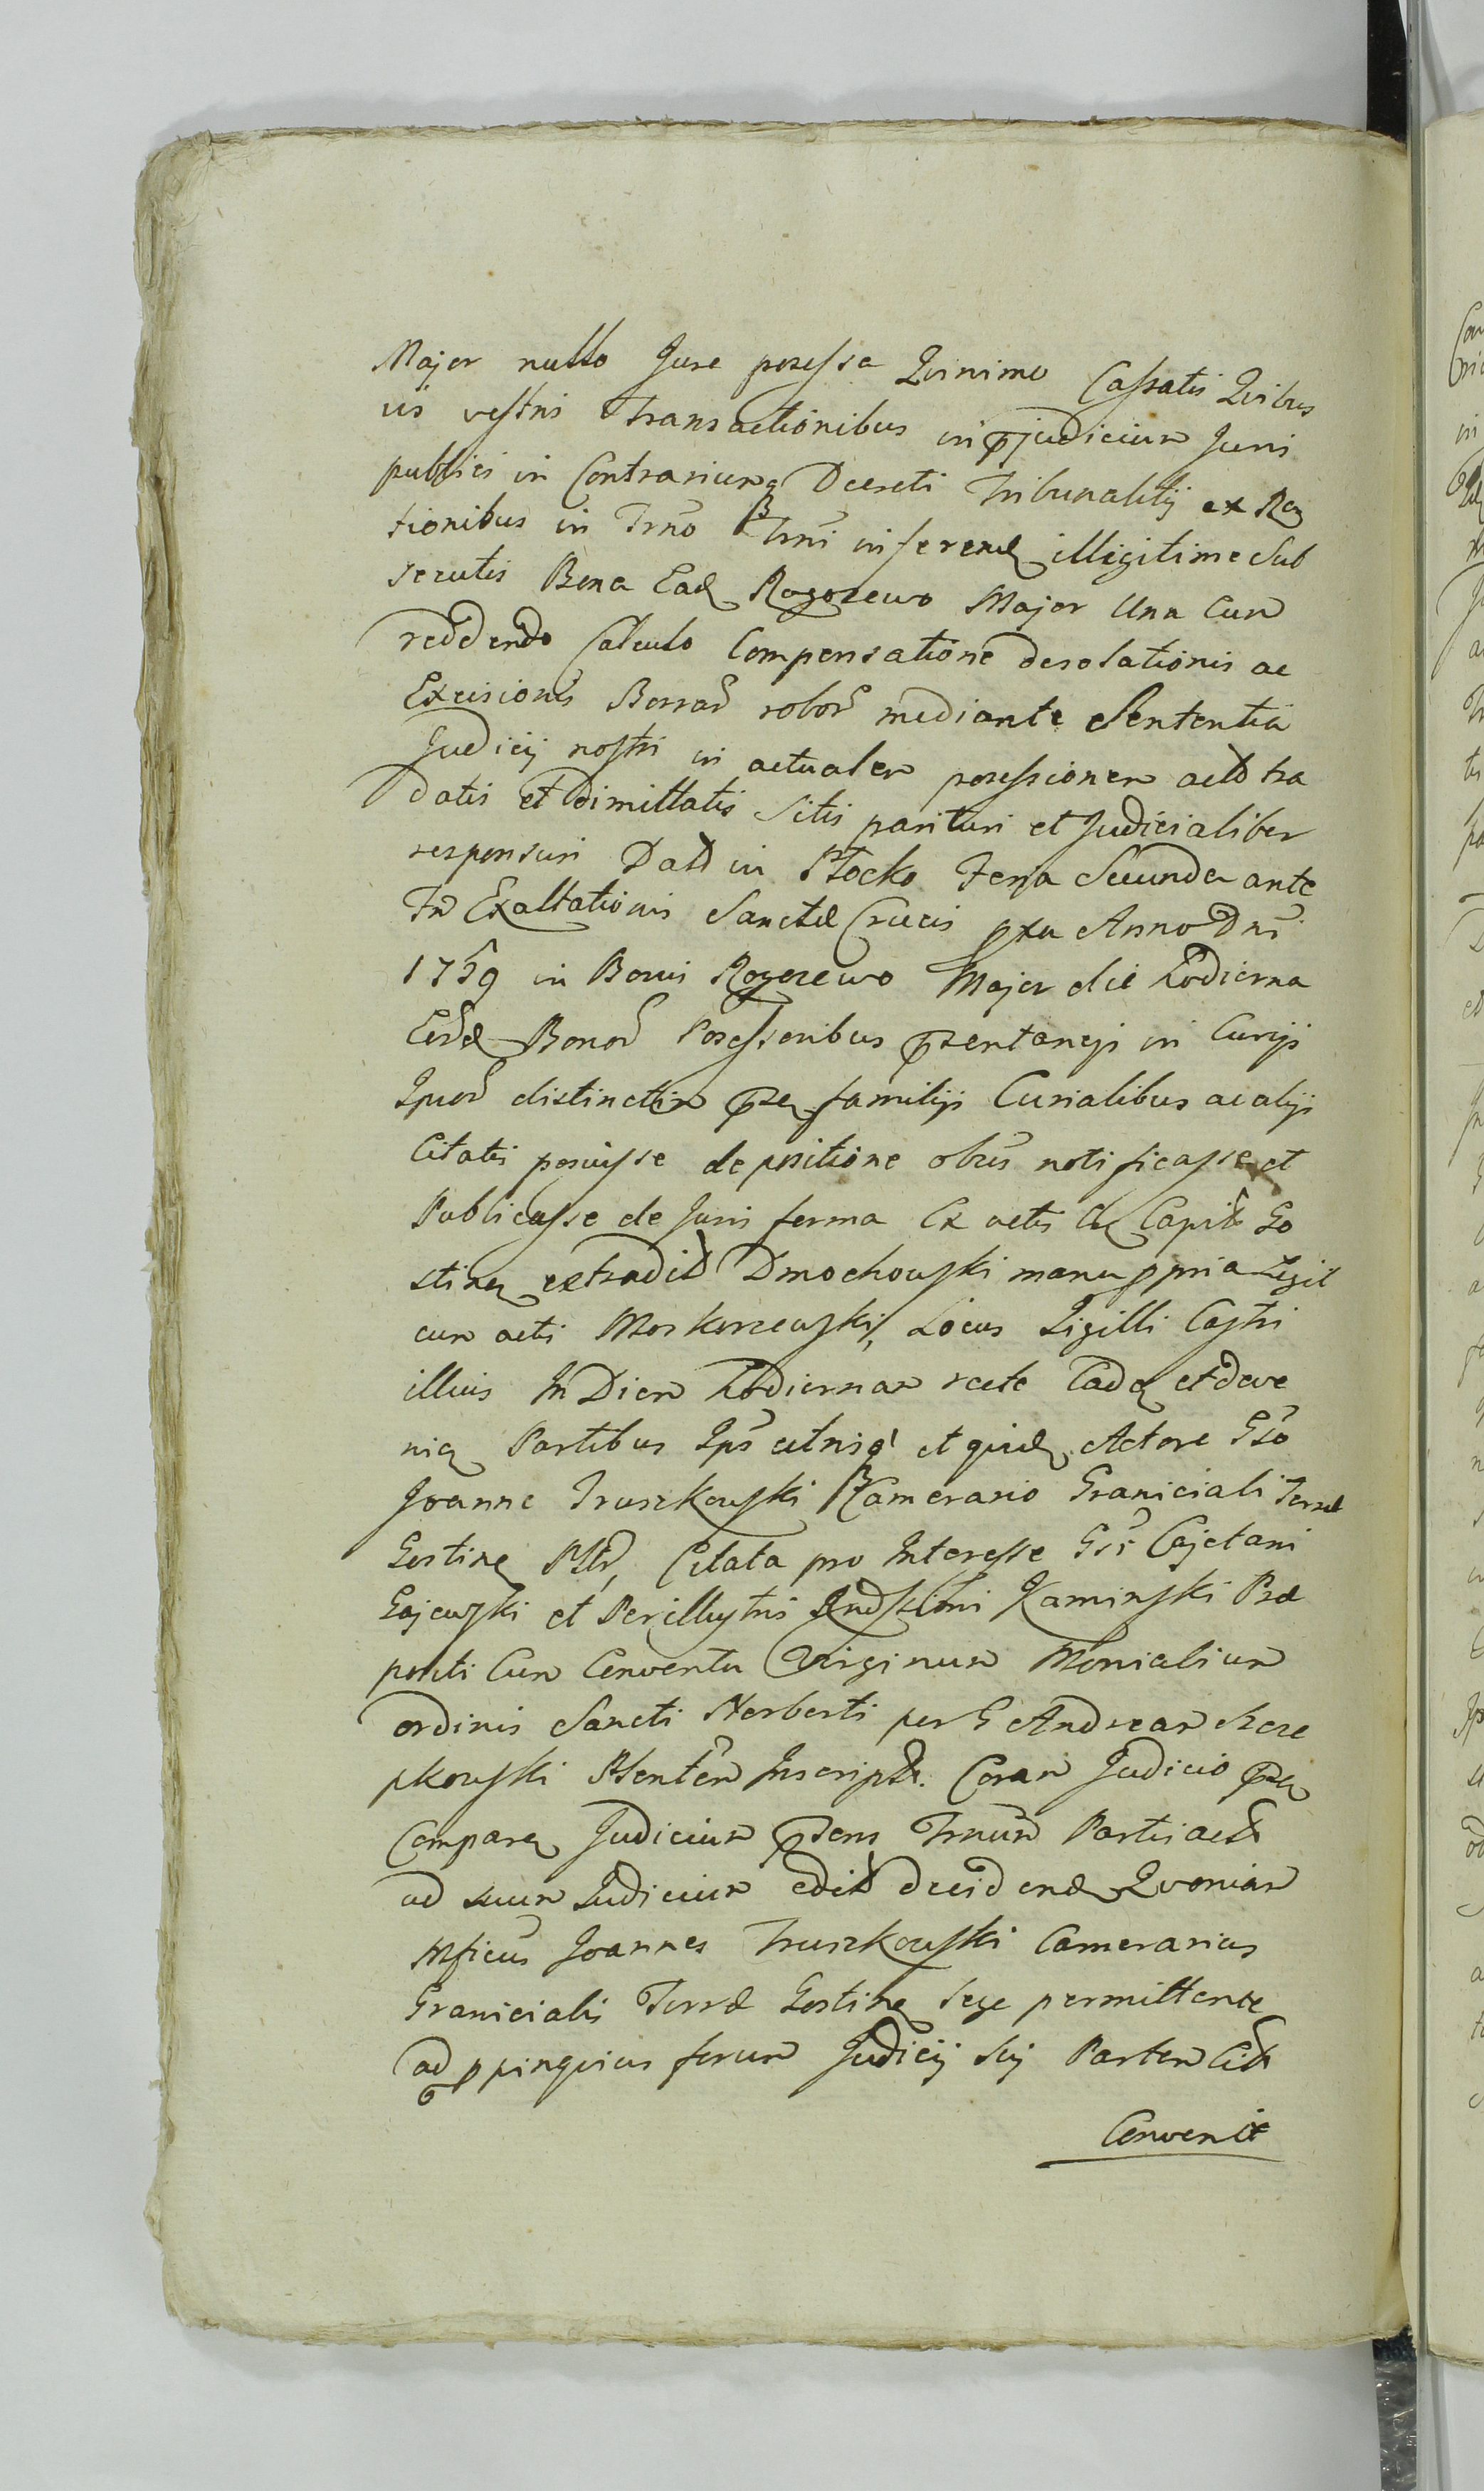 Major nullo Jure posessa Quinimo Cassatis Quibus
vis vestris transactionibus in pjudicium Juris
publici in Contrariumq Decreti Tribunalitij ex Ra
tionibus in Trno Trni inferend illigitime Sub
secutis Bona Ead Rogozewo Major Una Cum
reddendo Calculo Compensatione desolationis ac
Excisionis Borrar robor mediante Sententia
Judicij nostri in actualem posessionem actd tra
datis et Dimittatis Sitis parituri et Judicialiter
responsuri Datt in Plocko Feria Secunda ante
Fm Exaltationis Sanctæ Crucis pxa Anno Dni
1759 in Bonis Rogozewo Major die hodierna
Eord Bonor Posessoribus psentaneis in Curijs
Ipsor distinctim psen familijs Curialibus ac alijs
Citatis posuisse depositione obus notificasse et
Publicasse de Juris forma Ex actis C Capitt Go
stinen extradit Dmochowski manu ppria Legit
cum actis Morkorzewski, Locus Sigilli Castri
illius In Diem hodiernam recte Cade et deve
nien Partibus Ipis utrisq et quid Actore Gso
Joanne Truszkowski Kamerario Graniciali Terræ
Gostinen Pltr, Citata pro Interesse Gsi Cajetani
Gajewski et Perillustris Rndssimi Kaminski Præ
positi Cum Conventu Virginum Monialium
ordinis Sancti Norberti per G Andream Szcze
pkowski Plenten Inscriptt. Coram Judicio psen
Comparen Judicium psens Trnum Partis actt
ad suum Judicium editt decidend Quoniam
Mficus Joannes Truszkowski Camerarius
Granicialis Terræ Gostinen lege permittente
ad ppinquius forum Judicij Sui Partem Citt
Convenit